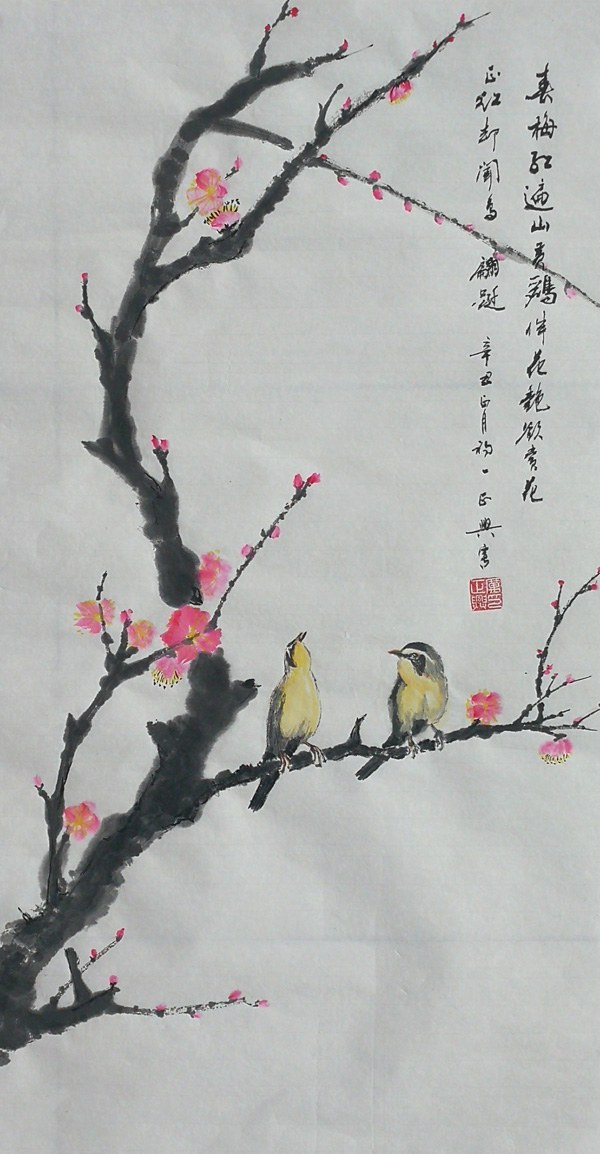 春梅红遍山青鶏伴花艳欲赏花
正红却闻鸟翩跹 辛丑正月初一正興写